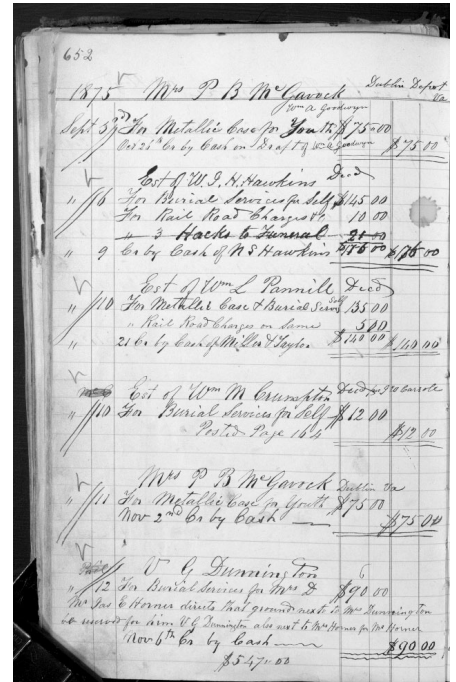 652
1875 Mrs P B McGavock Dublin Depot Va
Wm A Goodwyn
Sept 5 For Metallic Case for Youth $75.00
Oct 21st Cr by Cash on Draft of Wm A Goodwyn $75.00
Est of W. J. H. Hawkins Decd
" 6 For Burial Services for Self $145.00
For Rail Road Charges " 10 00
" 3 Hacks to Funeral 21 00
" 9 Cr by Cash of N S Hawkins
Est of Wm L Pannill Decd
" 10 For Metallic Case & Burial Servs Self 135 00
" Rail Road Charges on Same 5 00
21 Cr by Cash of Miller & Taylor $140 00 $140.00
Est of Wm M Crumpton Decd
" 10 For Burial Services for Self $12 00
Posted Page 164 $12 00
Mrs P B McGavock Dublin Va
" 11 For Metallic Case for Youth $75 00
Nov 2nd Cr by Cash $75.00
V G Dunnington
" 12 For Burial Services for Mrs D $90.00
Mr Jas E Horner directs that ground next to Mrs Dunnington
be reserved for him V G Dunnington also next to Mrs Horner for Mr Horner
Nov 6th Cr by Cash $90.00
$547.00